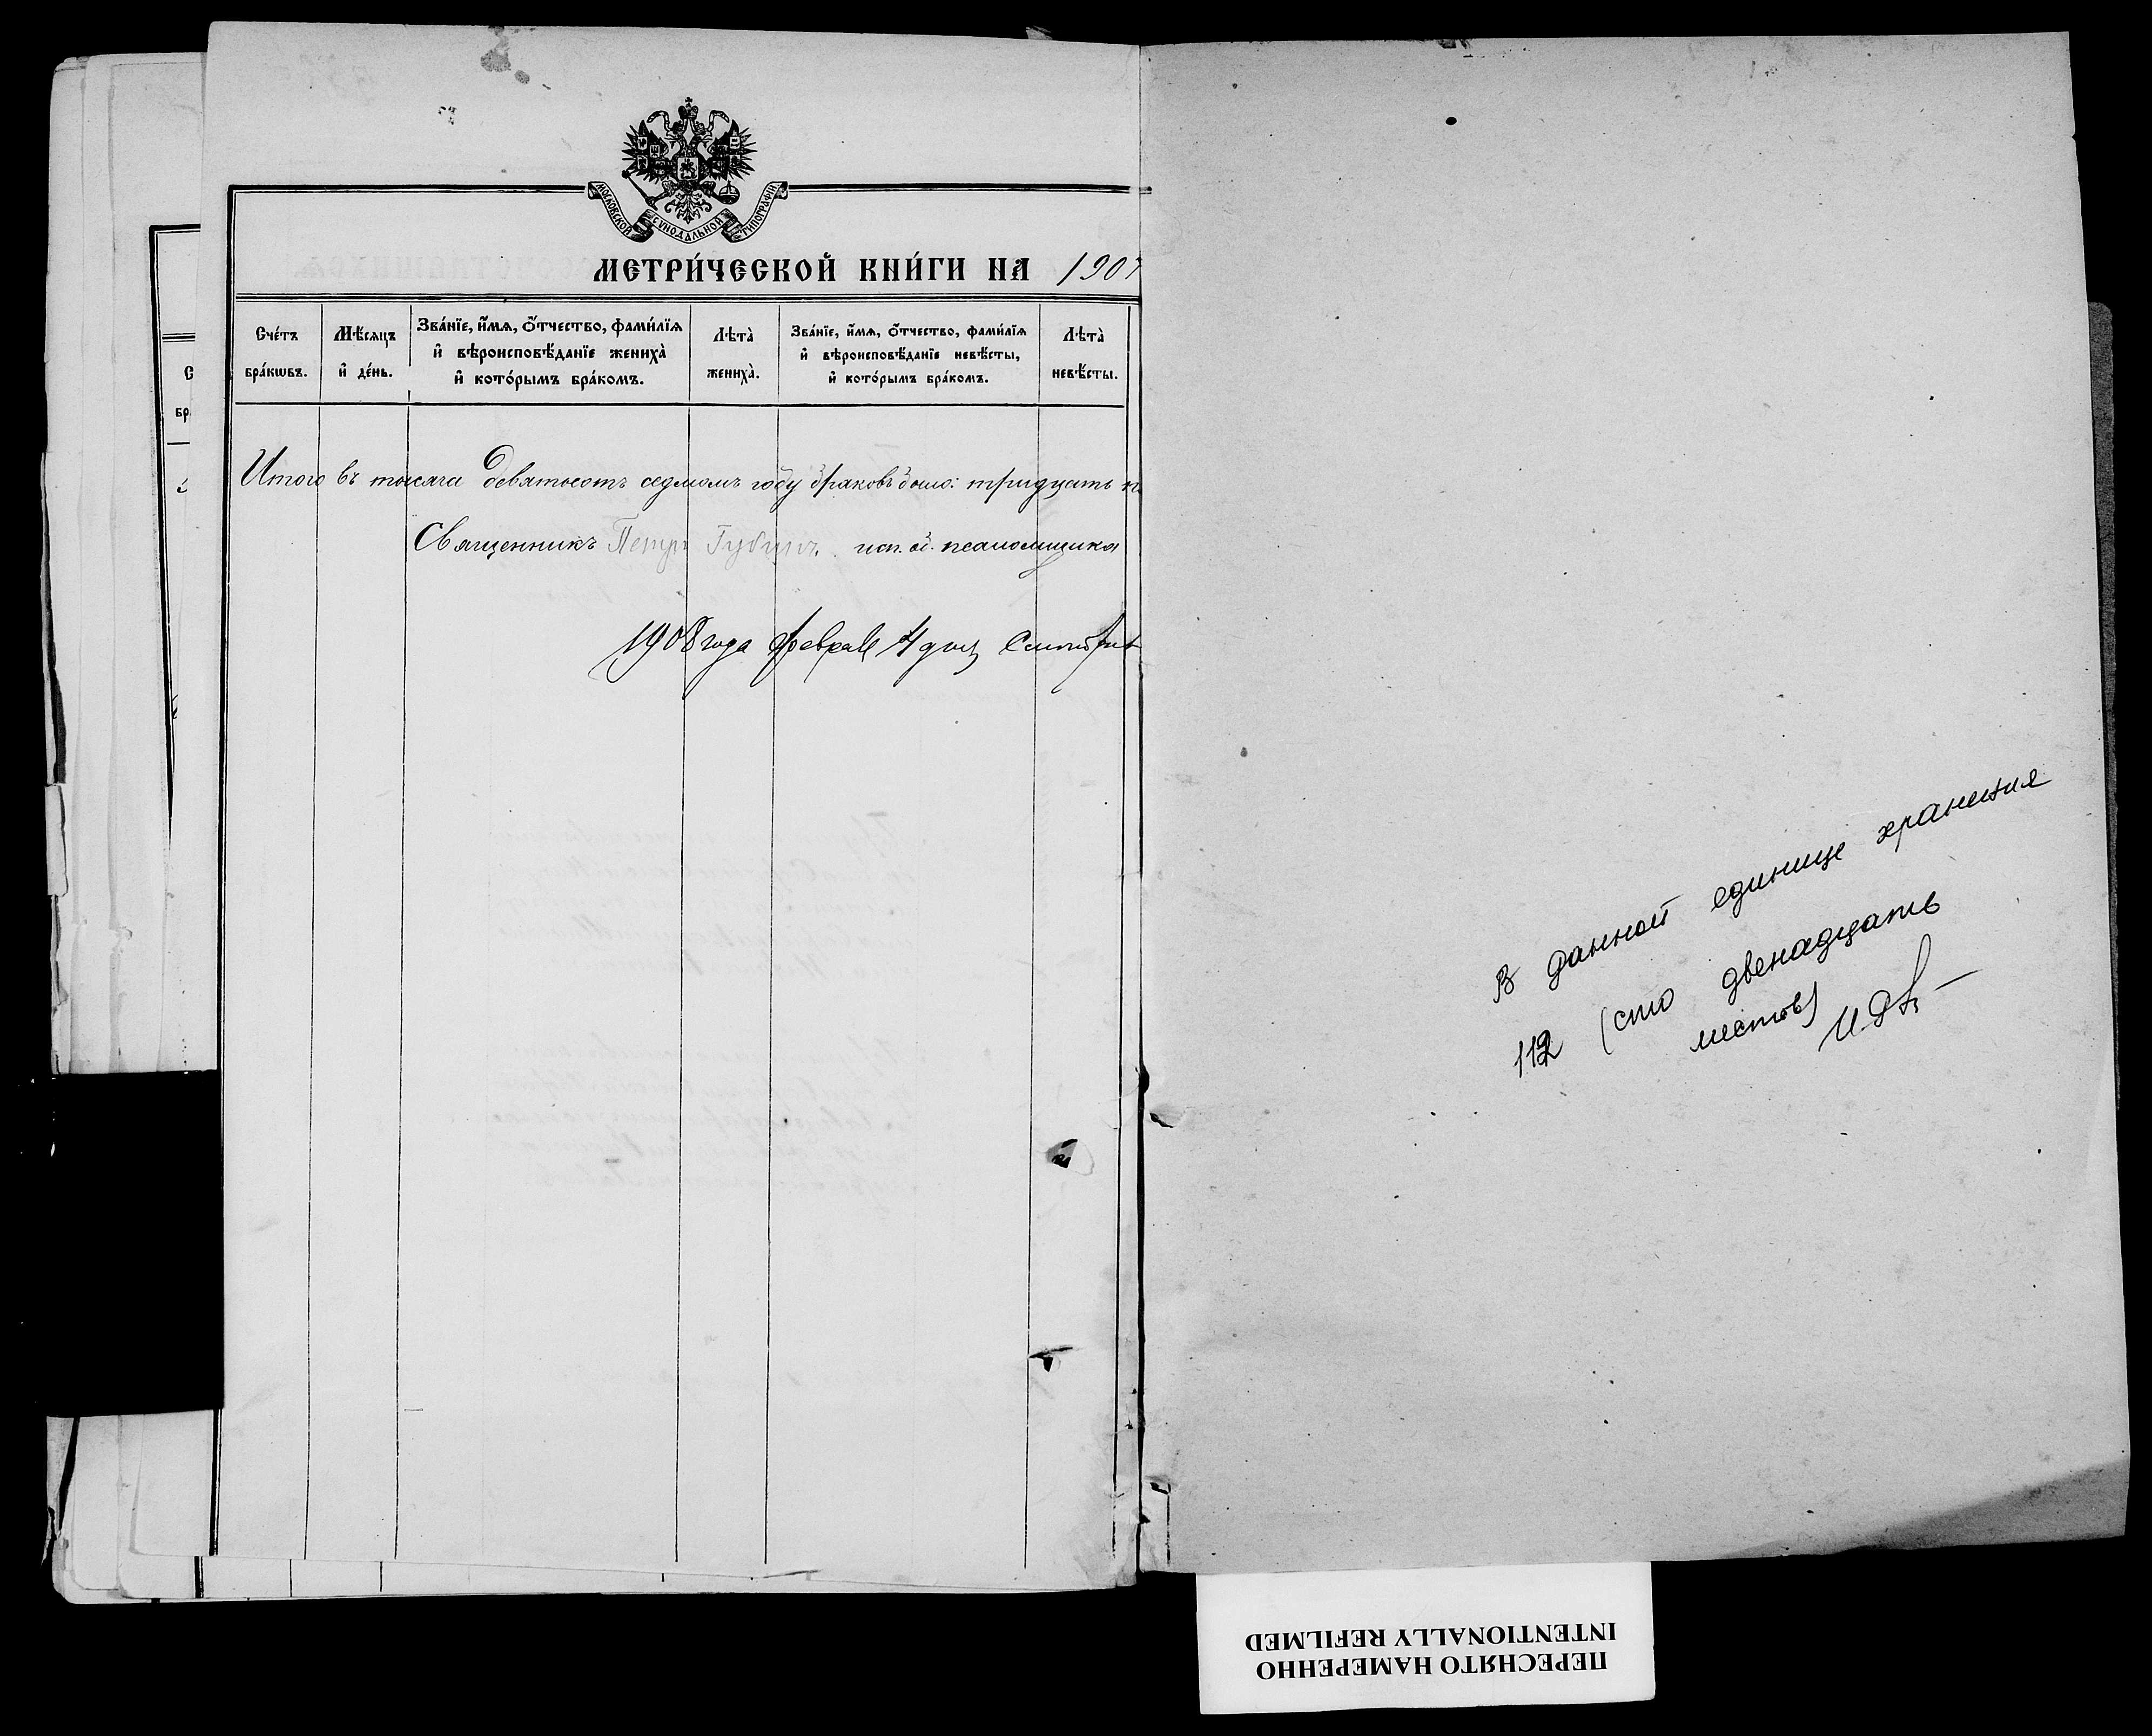 МОСКОВСКОЙ СѴНОДАЛЬНОЙ ТИПОГРАФІИ
МЕТРИ́ЧЕСКОЙ КНИ́ГИ НА 1907
Сче́тъ бра́кѡвъ.
Мѣ́сяцъ и҆ де́нь.
Зва́нїе, и҆́мѧ, ѻ҆́тчество, фами́лїѧ и҆ вѣроисповѣ́данїе жениха̀ и҆ кото́рымъ бра́комъ.
Лѣта̀ жениха̀.
Зва́нїе, и҆́мѧ, ѻ҆́тчество, фами́лїѧ и҆ вѣроисповѣ́данїе невѣ́сты, и҆ кото́рымъ бра́комъ.
Лѣта̀ невѣ́сты.
Итого въ тысяча девятьсотъ седьмомъ году браковъ было: тридцать
Священникъ Петръ Губинъ. исп. об. псаломщика
1908 года февраля 4 дня
В данной единице хранения
112 (сто двенадцать
листов)
ПЕРЕСНЯТО НАМЕРЕННО
INTENTIONALLY REFILMED